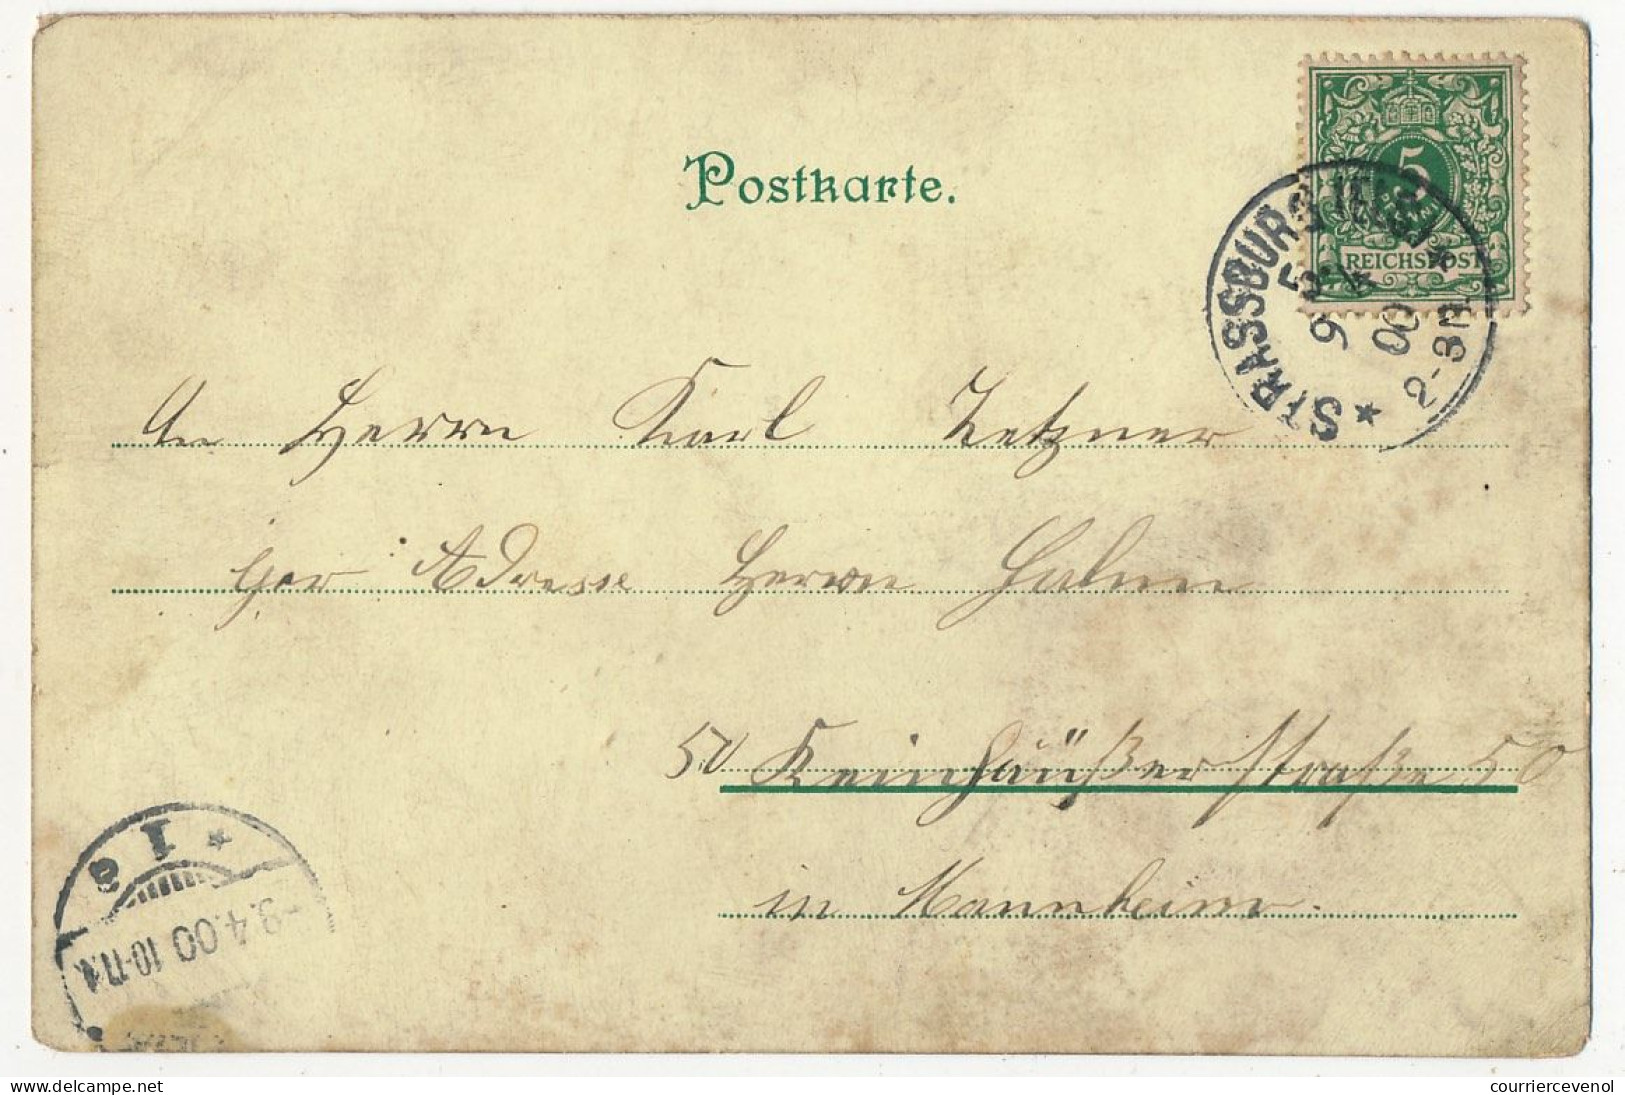 Postkarte.
5
REICHSPOST
STRASSBURG (ELS.)
9 4
00
2-3N.
An Herrn Karl Zetzner
per Adresse Herrn Halm
50 Keinhäußerstraße 50
in Mannheim.
1 e
-9.4.00 10-11V.
delcampe.net
courriercevenol